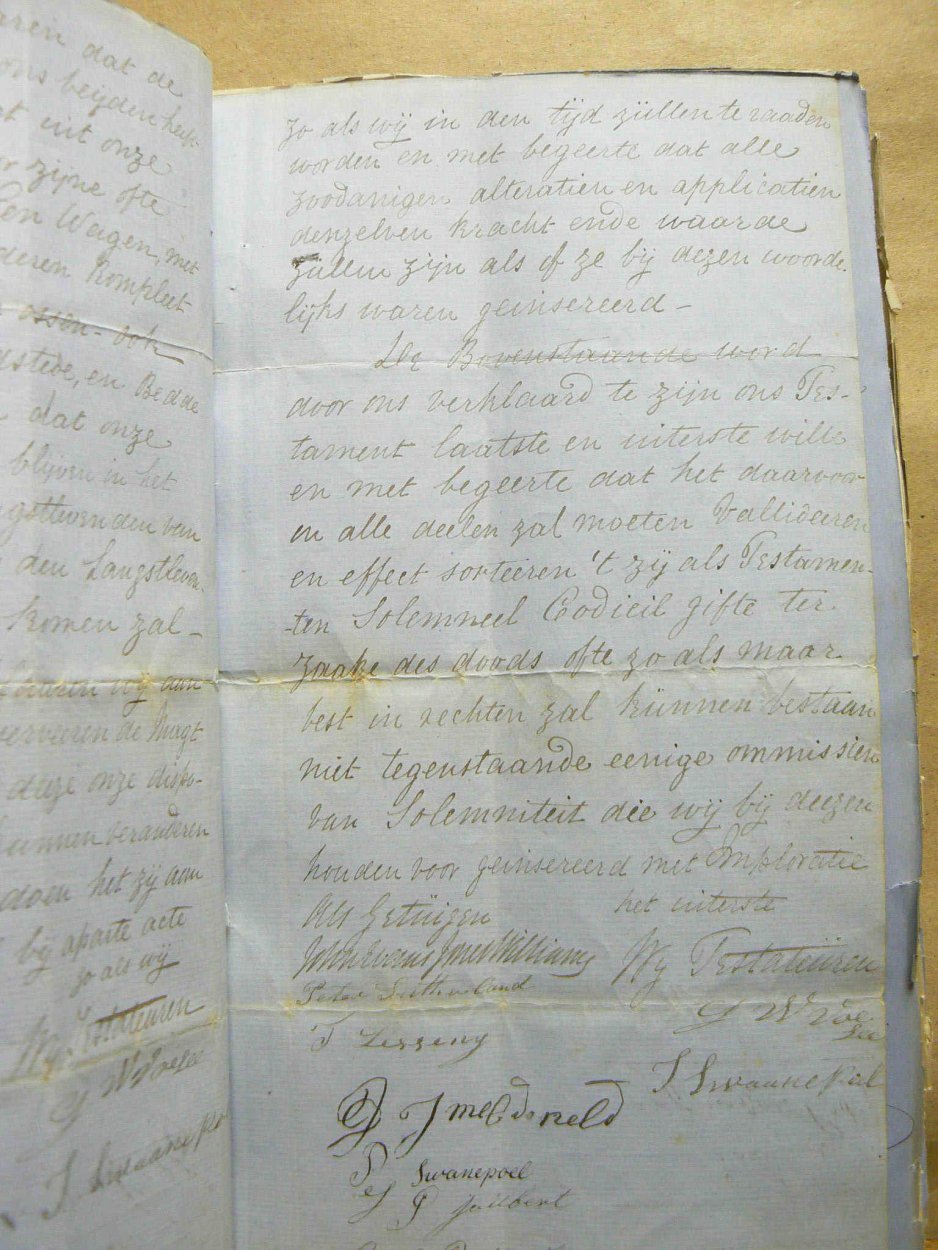 dat de
ons beijden heeft
uit onze
zijne ofte
Wagen, met
deren Kompleet
ossen- ook
stede, en Bedde
dat onze
blijven in het
van
den Langstleven-
komen zal -
wij aan
de Magt
deeze onze dispo-
kunnen veranderen
doen het zij aan
bij aparte acte
zo als wij
Wij Testateuren
zo als wij in den tijd züllen te raaden
worden en met begeerte dat alle
zoodanigen alteratien en applicatien
denzelven kracht ende waarde
zullen zijn als of ze bij dezen woorde.
lijks waren geinsereerd -
De Bovenstaande word
door ons verklaard te zijn ons Tes-
tament laatste en uiterste wille
en met begeerte dat het daarvoor
in alle deelen zal moeten Vallideeren
en effect sorteeren 't zij als Testamen-
-ten Solemneel Codicil gifte ter
zaake des doods ofte zo als maar
best in rechten zal künnen bestaan
niet tegenstaande eenige ommissien
van Solemniteit die wij bij deezen
houden voor geinsereerd met Imploratie
het uiterste
Als Getüigen
Wij Testateüren
John Evans Jones Williams
Peter Sutherland
T Lessing
J Swanepoel
P Swanepoel
P Jullbert